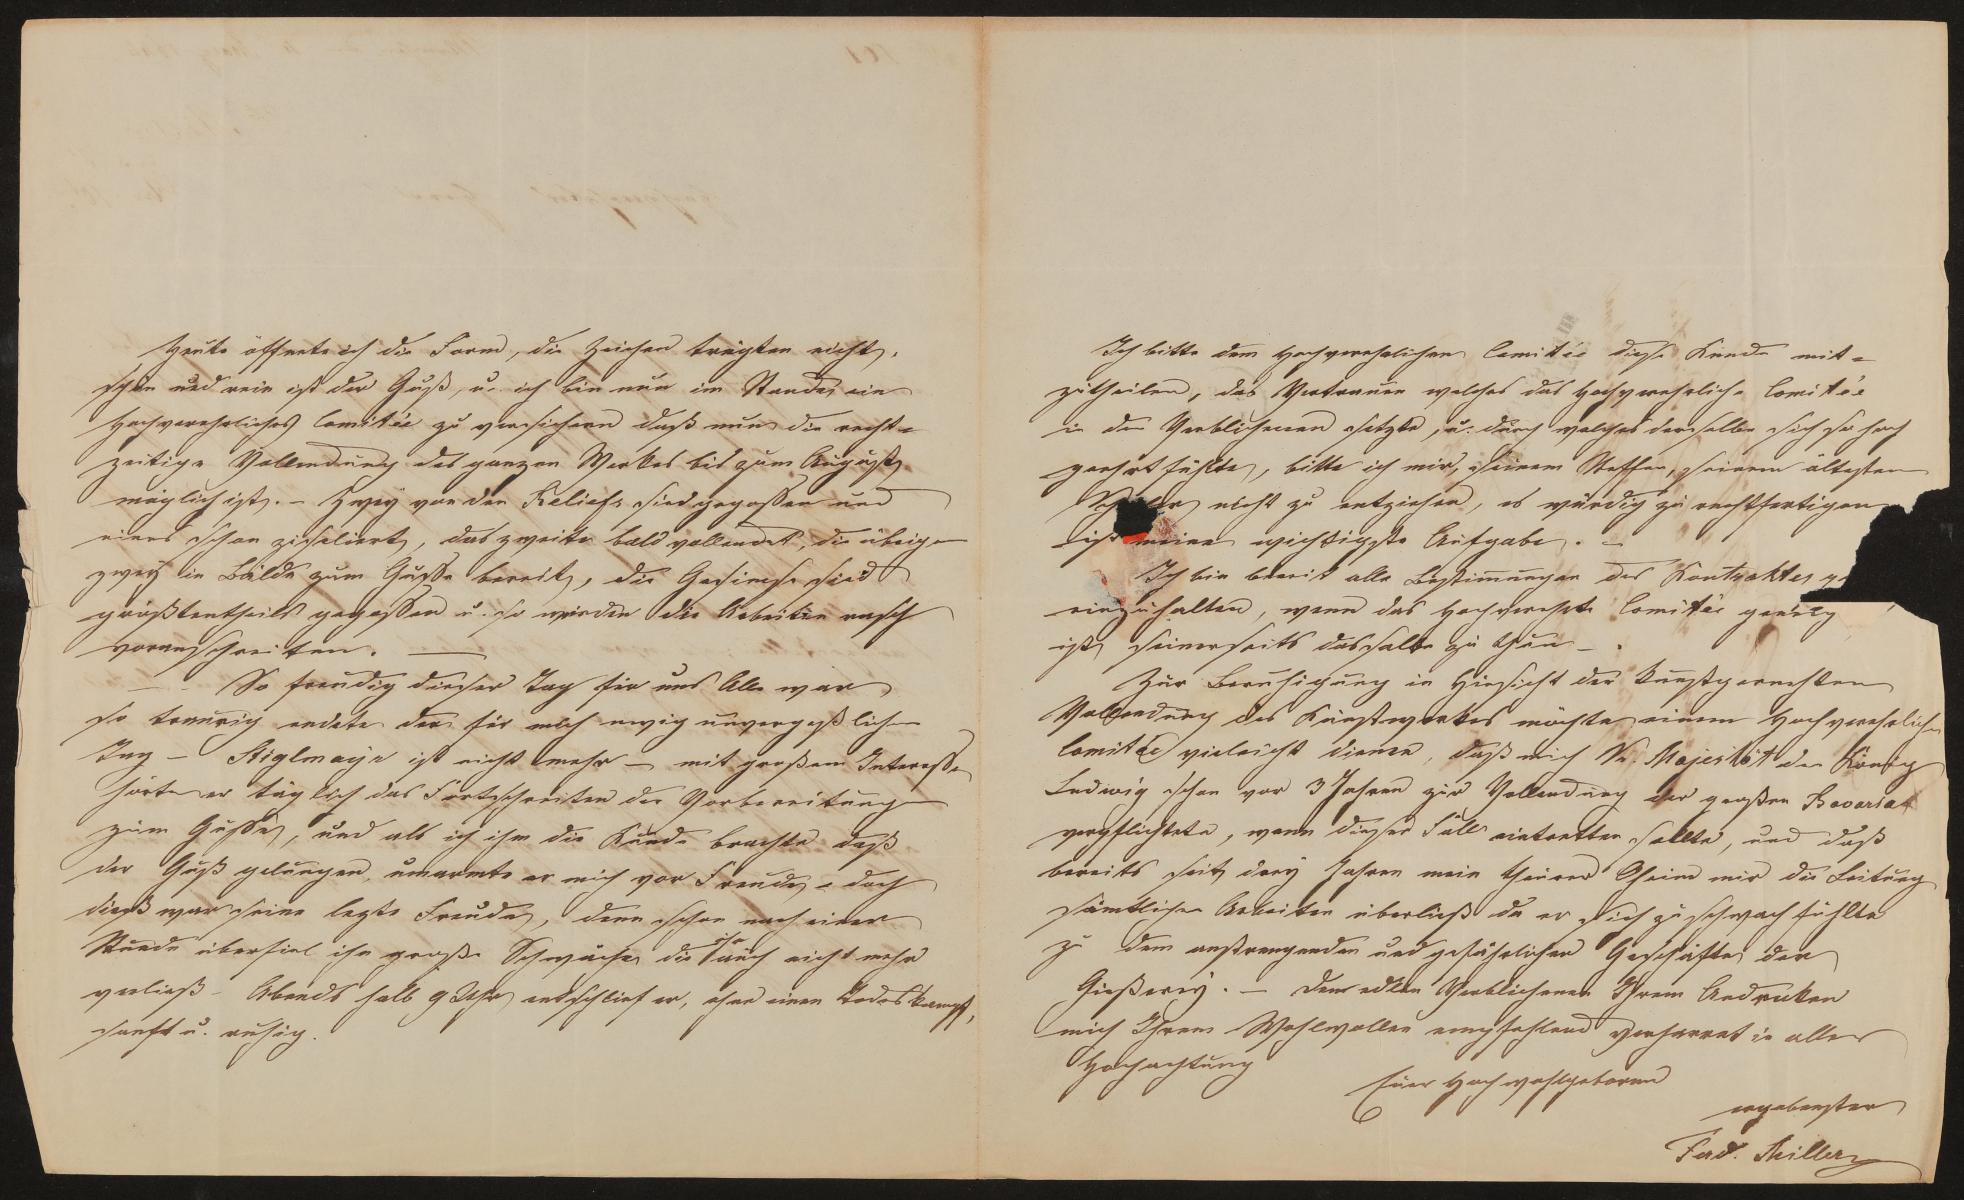 Heute öffnete ich die Form, die Zeichen trügten nicht,
schön und rein ist der Guß, u. ich bin nun im Stande, ein
Hochverehrliches Comitée zu versichern daß nun die recht-
zeitige Vollendung des ganzen Werkes bis zum August
möglich ist. – Zwey von den Reliefs sind gegossen und
eines schon ziseliert, das zweite bald vollendet, die übrigen
zwey in Bälde zum Gusse bereit, die Gesimse sind
größtentheils gegossen u. so würden die Arbeiten rasch
voranschreiten. —
— So freudig dieser Tag für uns Alle war
so traurig endete der für mich ewig unvergeßliche
Tag – Stiglmayr ist nicht mehr – mit großem Interesse
hörte er täglich das Fortschreiten der Vorbereitungen
zum Gusse, und als ich ihm die Kunde brachte daß
der Guß gelungen, umarmte er mich vor Freude, – doch
dieß war seine letzte Freude, denn schon nach einer
Stunde überfiel ihn große Schwäche die ihn auch nicht mehr
verließ – Abends halb 9 Uhr entschlief er, ohne einen Todeskampf,
sanft u. ruhig.
Ich bitte dem Hochverehrlichen Comitée diese Kunde mit-
zutheilen, das Vertrauen welches das Hochverehrliche Comitée
in den Verblichenen setzte, u. durch welches derselbe sich so hoch
geehrt fühlte, bitte ich mir, seinem Neffen, seinem ältesten
Schüler nicht zu entziehen, es würdig zu rechtfertigen
ist meine wichtigste Aufgabe. –
Ich bin bereit alle Bestimmungen des Kontraktes
einzuhalten, wenn das Hochverehrte Comitée geneigt
ist, seinerseits dasselbe zu thun –.
Zur Beruhigung in Hinsicht der kunstgerechten
Vollendung des Kunstwerkes möchte einem Hochverehrlichen
Comitée vieleicht dienen, daß mich Se. Majestät der König
Ludwig schon vor 3 Jahren zur Vollendung der großen Bavaria
verpflichtete, wenn dieser Fall eintretten sollte, und daß
bereits seit drey Jahren mein theurer Oheim mir die Leitung
sämtlicher Arbeiten überließ da er sich zu schwach fühlte
zu dem anstrengenden und gefährlichen Geschäfte der
Gießerey. – Den edlen Verblichenen Ihrem Andenken
mich Ihrem Wohlwollen empfehlend verharret in aller
Hochachtung
Euer Hochwohlgeboren
ergebenster
Ferd. Miller